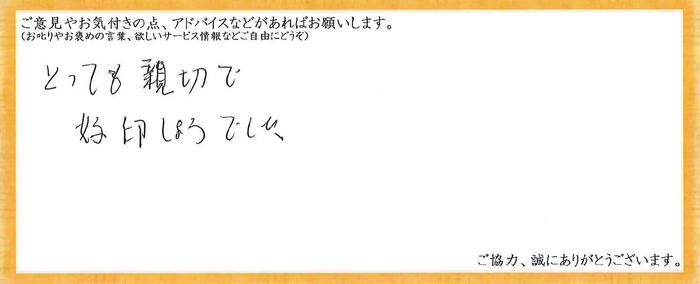 ご意見やお気付きの点、アドバイスなどがあればお願いします。
（お叱りやお褒めの言葉、欲しいサービス情報などご自由にどうぞ）
とっても親切で
好印しょうでした
ご協力、誠にありがとうございます。